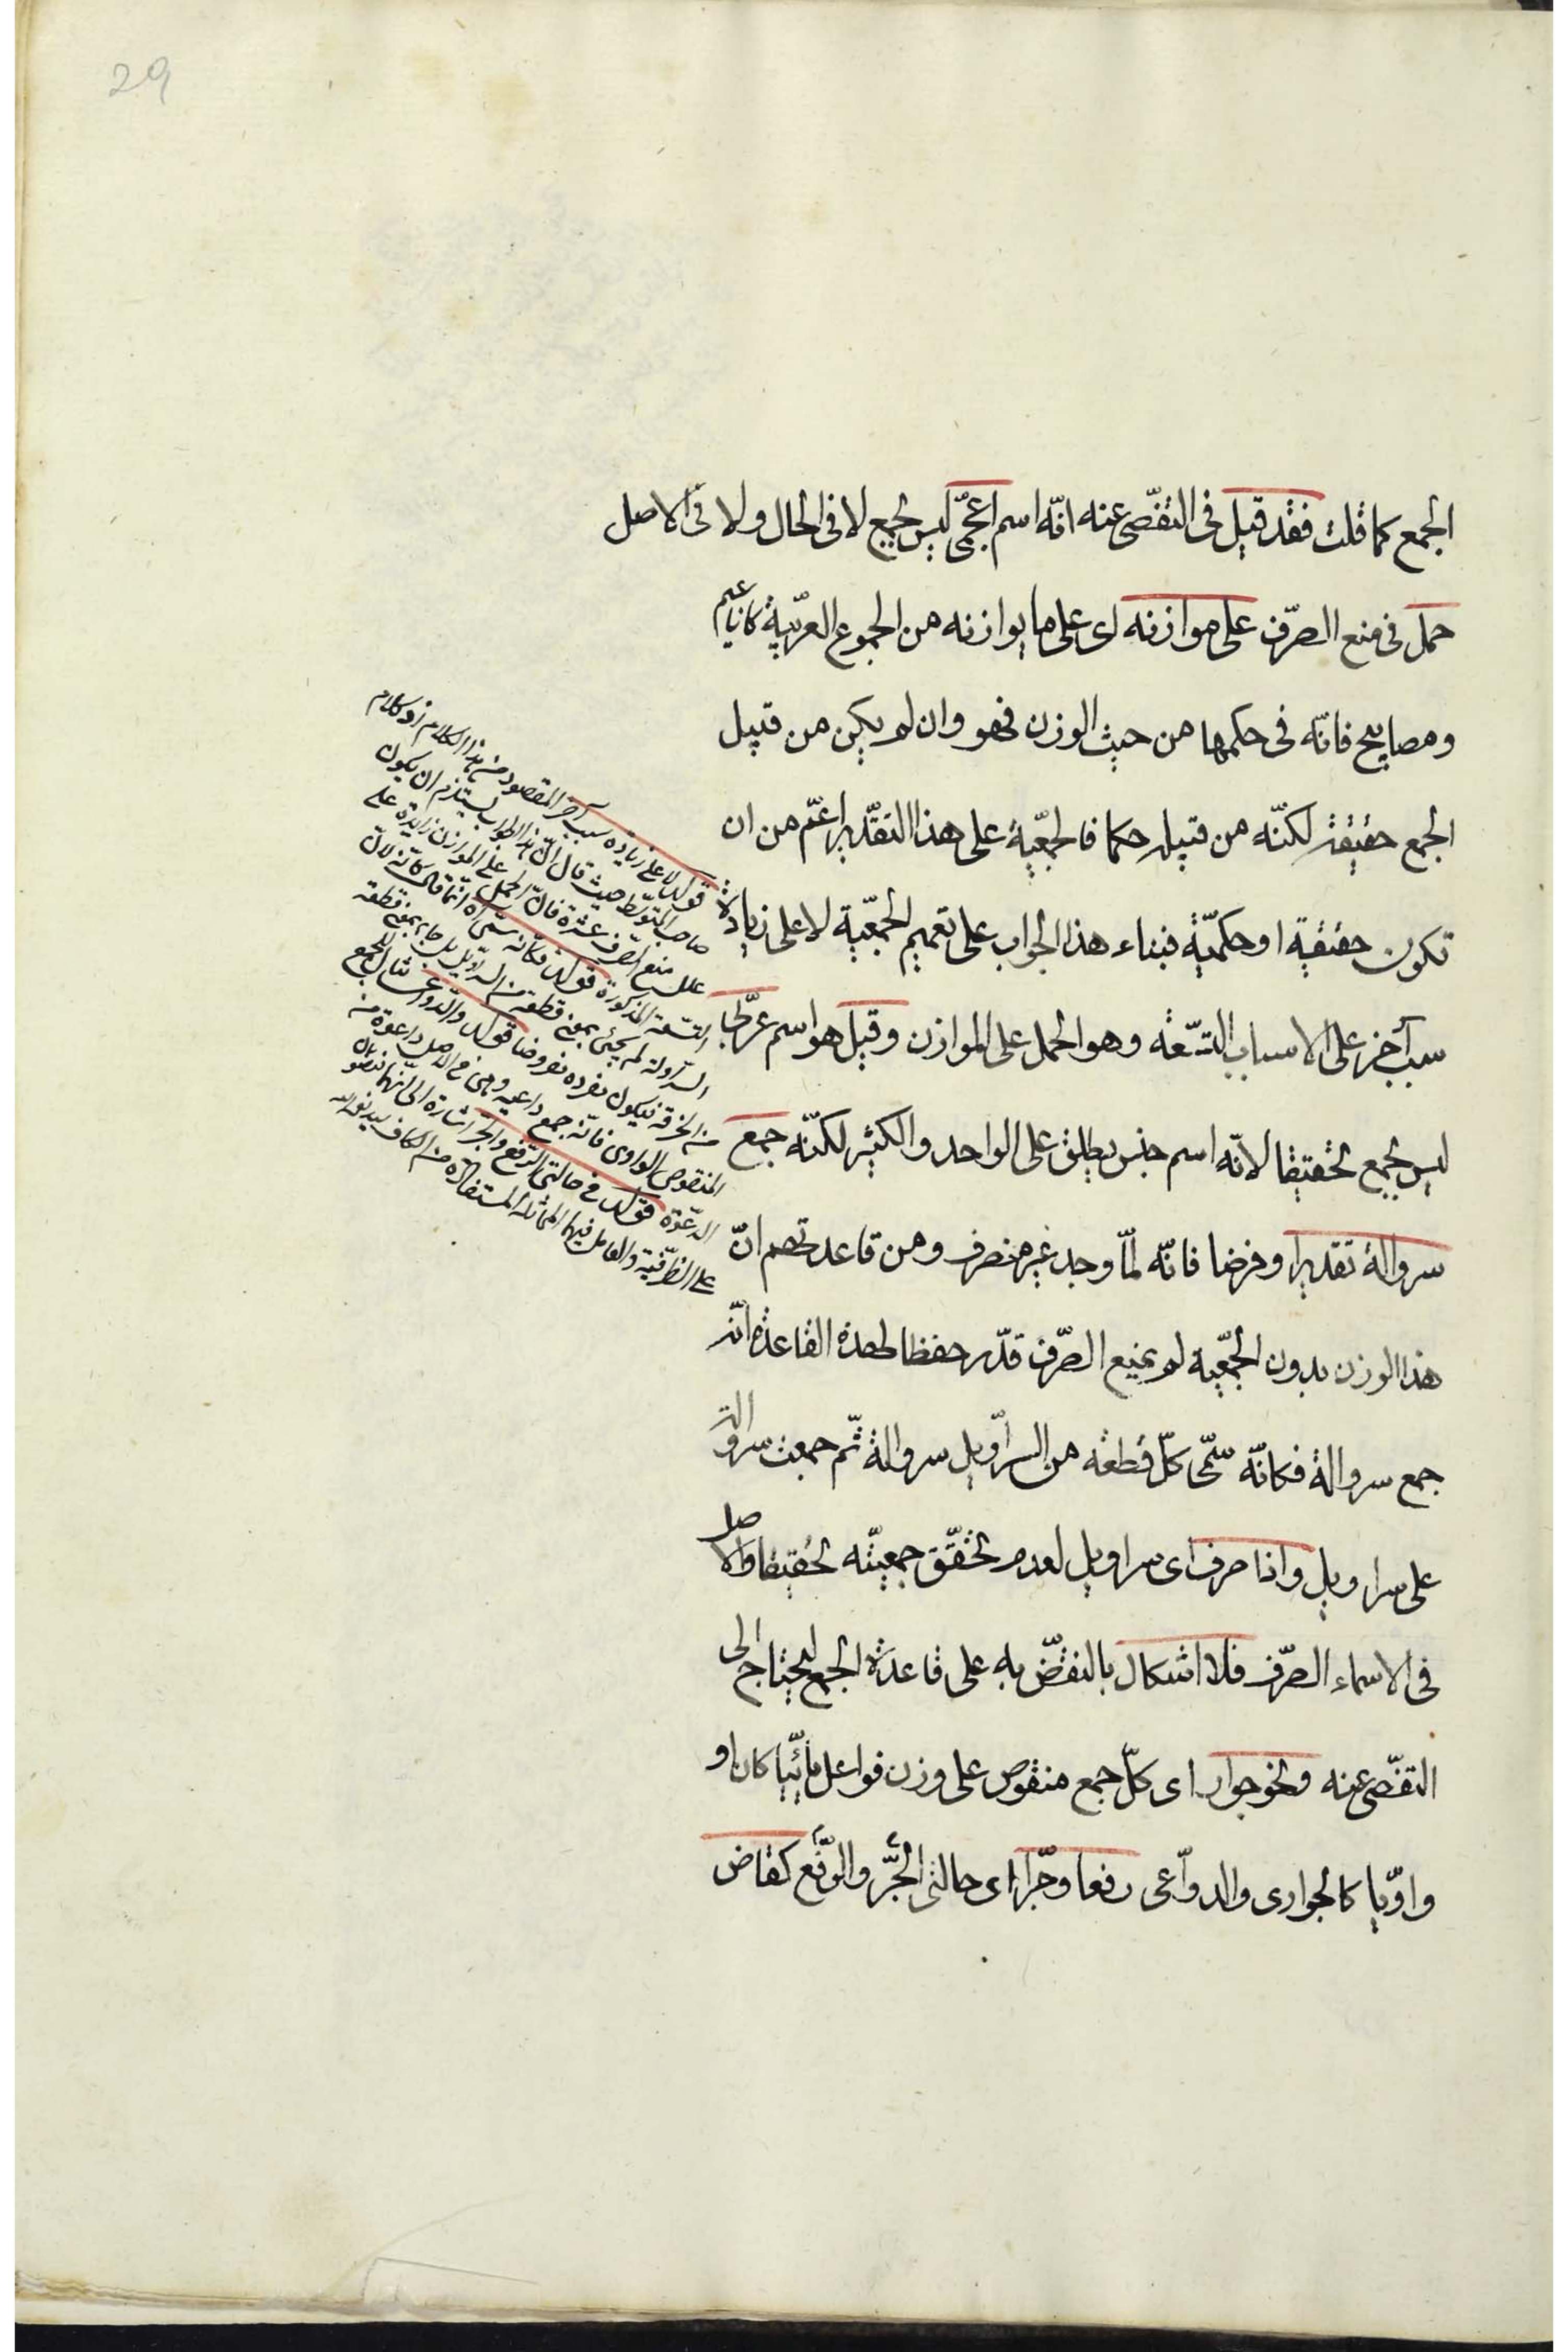 29
الجمع كما قلت فقد قيل فى التفصّى عنه انّه اسم اعجمىّ ليس بجمع لا فى الحال ولا فى الاصل
حمل فى منع الصّرف على موازنه اى على ما يوازنه من الجموع العربيّة كاناعيم
ومصابيح فانّه فى حكمها من حيث الوزن فهو وان لم يكن من قبيل
الجمع حقيقة لكنّه من قبيله حكما فالجمعيّة على هذا التقدير اعمّ من ان
تكون حقيقية او حكميّة فبناء هذا الجواب على تعميم الجمعيّة لا على زيادة
سبب آخر على الاسباب التسعة وهو الحمل على الموازن وقيل هو اسم عربىّ
ليس بجمع تحقيقا لانّه اسم جنس يطلق على الواحد والكثير لكنّه جمع
سروالة تقديرا وفرضا فانّه لمّا وجد غير منصرف ومن قاعدتهم انّ
هذا الوزن بدون الجمعيّة لم يمنع الصّرف قدّر حفظا لهذه القاعدة انّه
جمع سروالة فكانّه سمّى كلّ قطعة من السراويل سروالة ثمّ جمعت سروالة
على سراويل واذا صرف اى سراويل لعدم تحقّق جمعيّته تحقيقا والاصل
فى الاسماء الصّرف فلا اشكال بالنقض به على قاعدة الجمع ليحتاج الى
التفصّى عنه ونحو جوار اى كلّ جمع منقوص على وزن فواعل يائيّا كان او
واويّا كالجوارى والدواعى رفعا وجرّا اى حالتى الجرّ والرفع كقاض
قوله لا على زيادة سبب آخر المقصود من هذا الكلام ردّ كلام
صاحب المتوسّط حيث قال انّ هذا الجواب يستلزم ان يكون
علل منع الصرف عشرة فانّ الحمل على الموازن زايدة على
التسعة المذكورة قوله فكانّه سمّى اه انّما قال كانّه لانّ
السروالة لم يجئ بمعنى قطعة من السراويل بل جاء بمعنى قطعة
من الخرقة فيكون مفرده مفروضا قوله والدواعى مثال للجمع
المنقوص الواوى فانّه جمع داعية وهى فى الاصل داعوة من
الدعوة قوله فى حالتى الرفع والجرّ اشارة الى انّهما منصوبان
على الظرفية والعامل فيها المماثلة المستفادة من الكاف